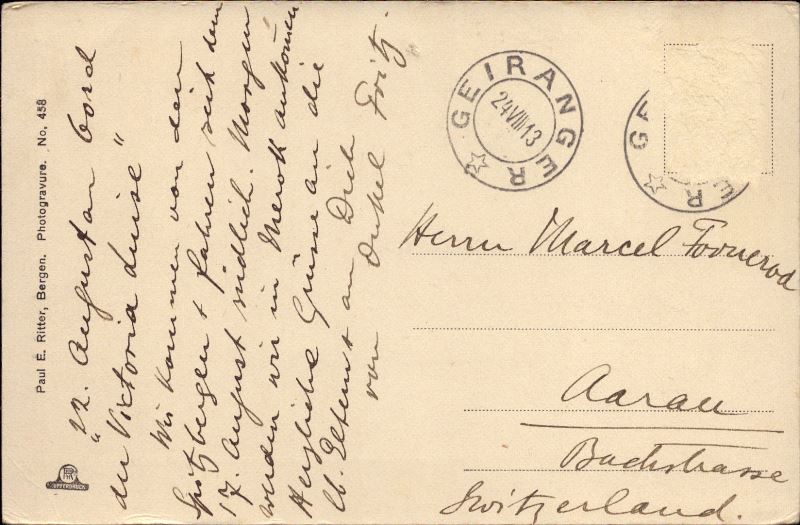 Paul E. Ritter, Bergen. Photogravure. No. 458
"22. August an bord
der Victoria Luise"
Wir kommen von den
Spitzbergen & fahren seit dem
17. August südlich. Morgen
werden wir in Merok ankommen
Herzliche Grüsse an die
lb. Eltern & an Dich
von Onkel Fritz.
GEIRANGER
24 VIII 13
GE ER
Herrn Marcel Fornerod
Aarau
Bachstrasse
Switzerland.
KUPFERDRUCK